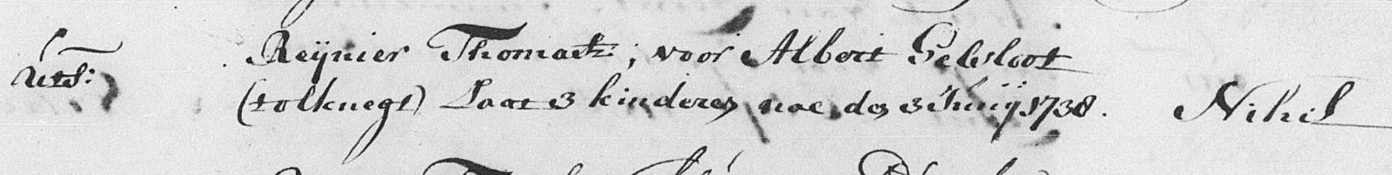 Uts: Reijnier Thomasz:, voor Albert Gelsloot
(tolknegt) Laat 3 kinderen nae den 3 Junij 1738. Nihil